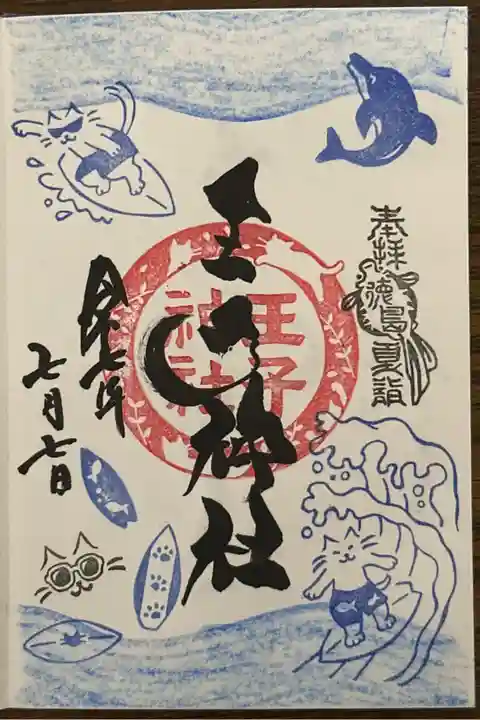 奉拝
徳島夏詣
王子神社
王子神社
令七年
七月七日